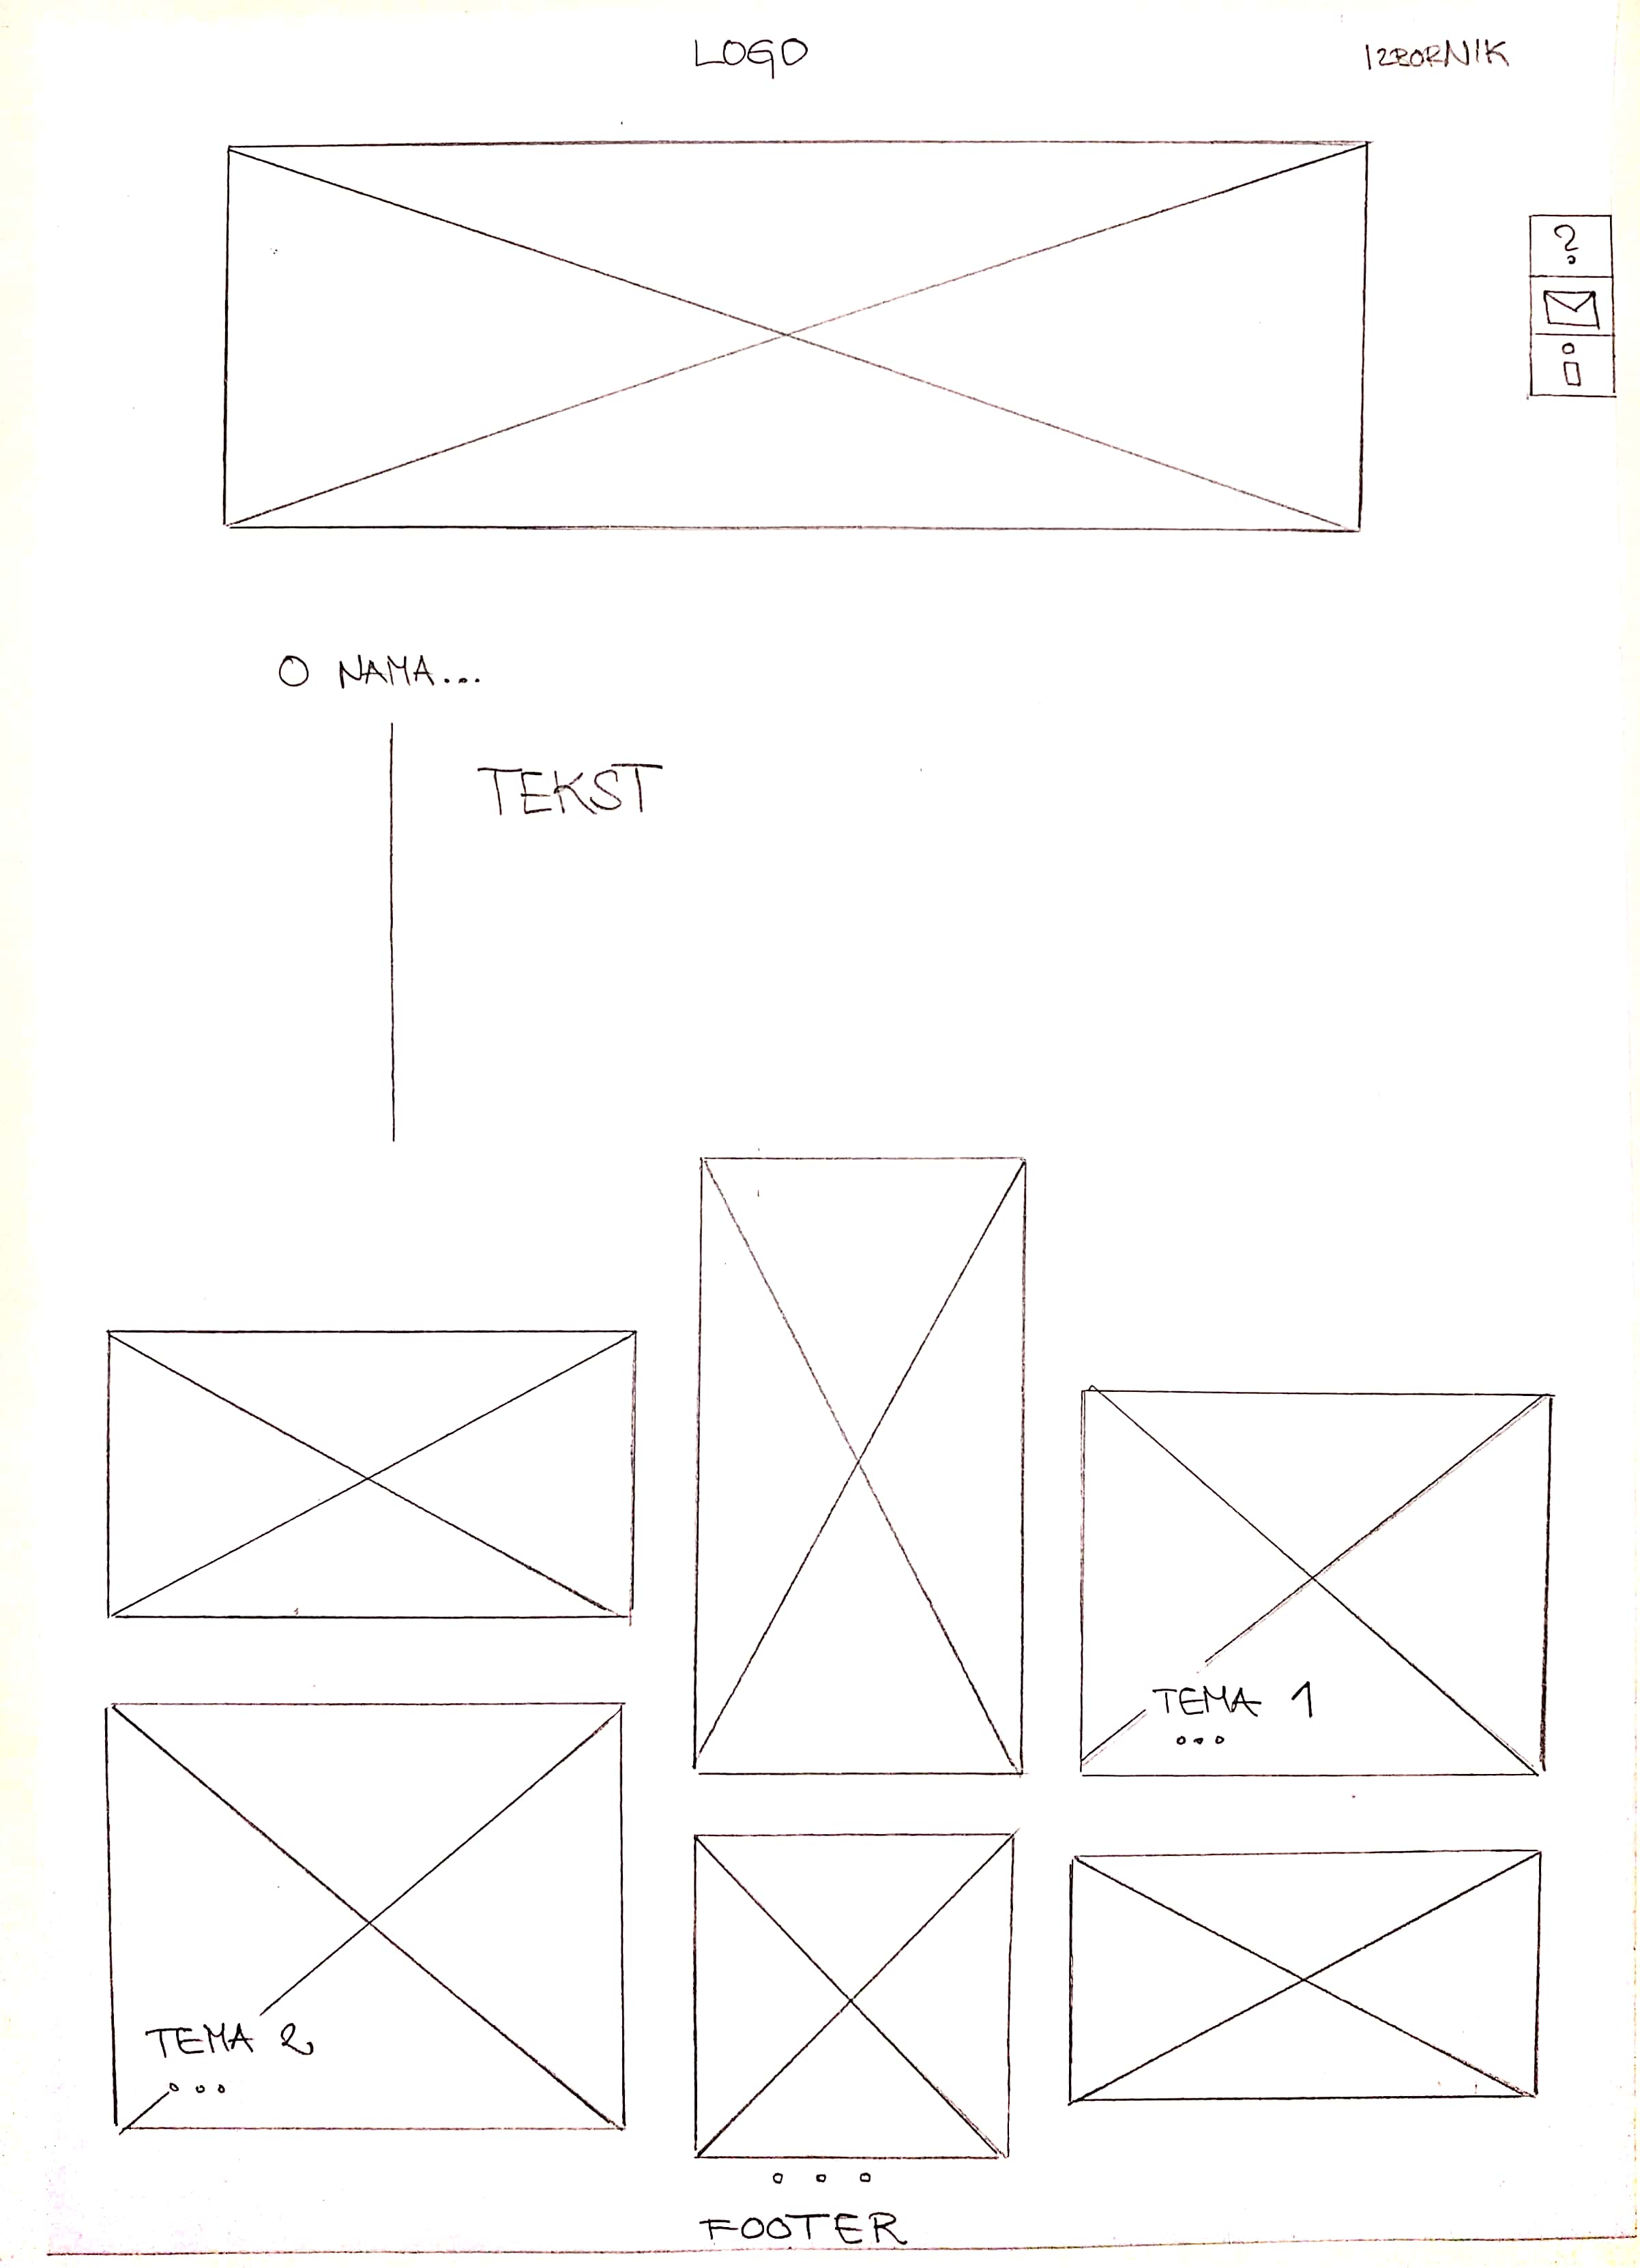 LOGO
IZBORNIK
?
i
O NAMA...
TEKST
TEMA 1
...
TEMA 2
...
...
FOOTER